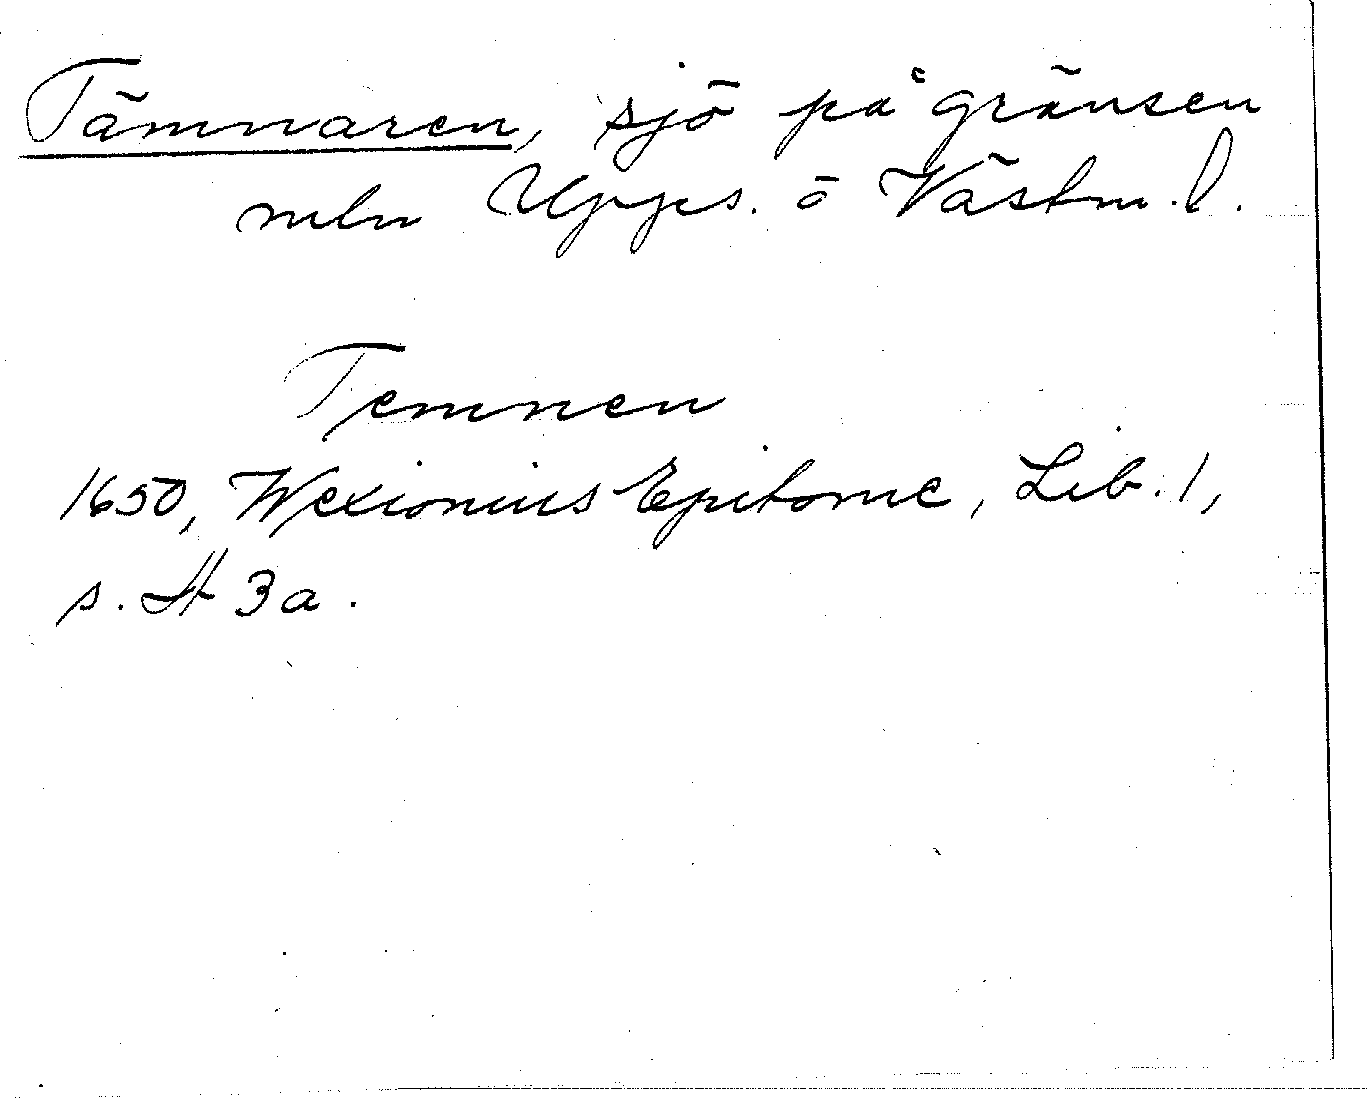 Tämnaren, sjö på gränsen
mln Upps. o Västm. l.
Temnen
1650, Wexionius Epitome, Lib. 1,
s. A 3 a.